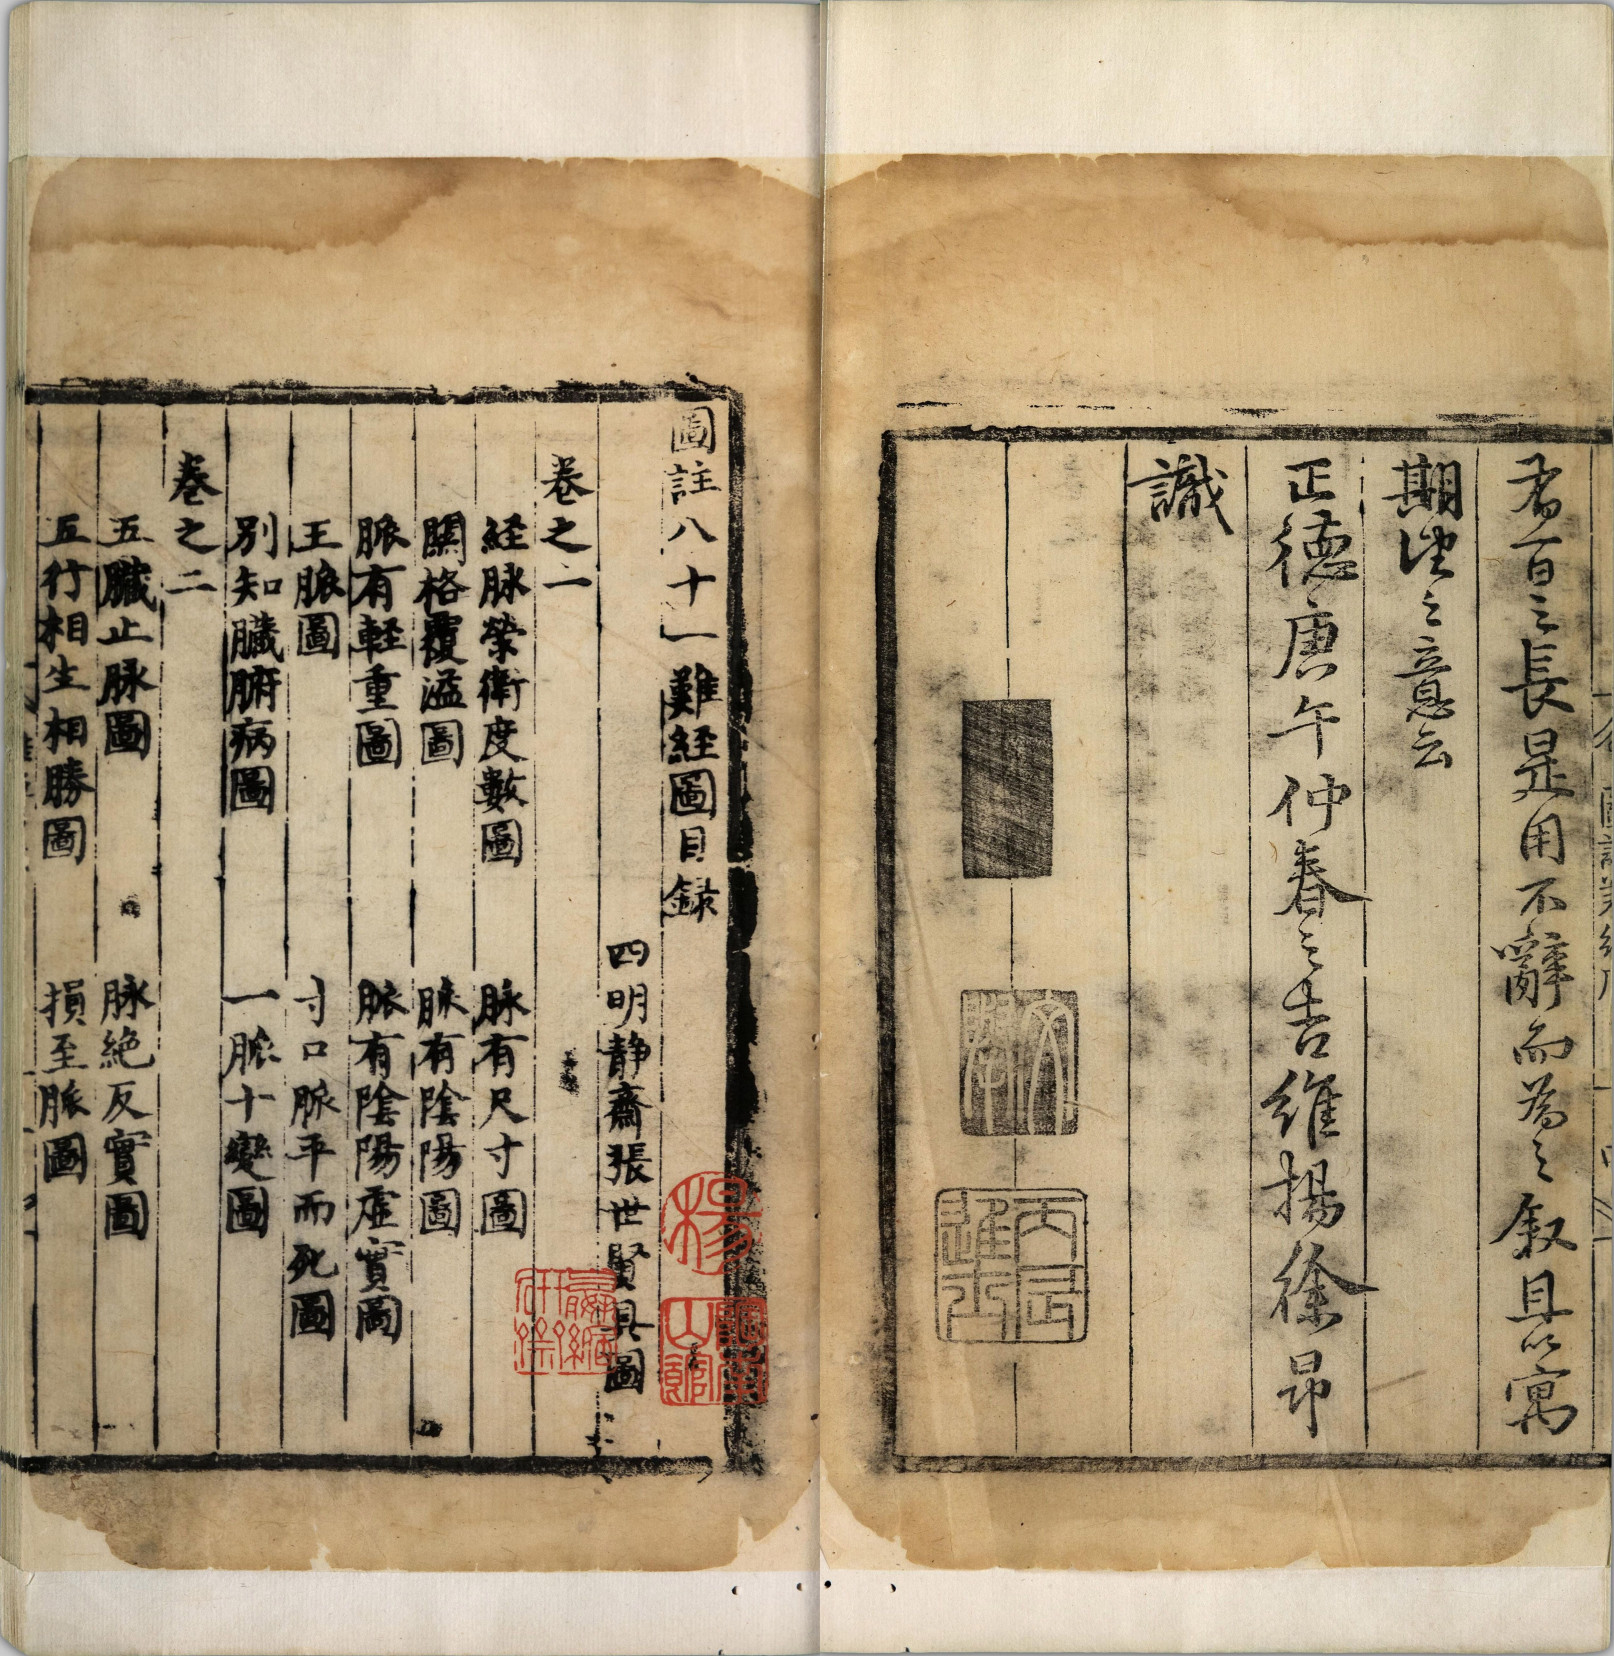 者百之長是用不辭而為之叙且以寓
期望之意云
正德庚午仲春之吉維揚徐昂
識
圖註八十一難経圖目録
四明静齋張世賢具圖
卷之一
経脉榮衛度數圖
脉有尺寸圖
關格覆溢圖
脉有陰陽圖
脈有軽重圖
脈有陰陽虚實圖
王脈圖
寸口脈平而死圖
別知臟腑病圖
一脈十變圖
卷之二
五臟止脉圖
脉絶反實圖
五行相生相勝圖
損至脈圖
丙辰進士
楊